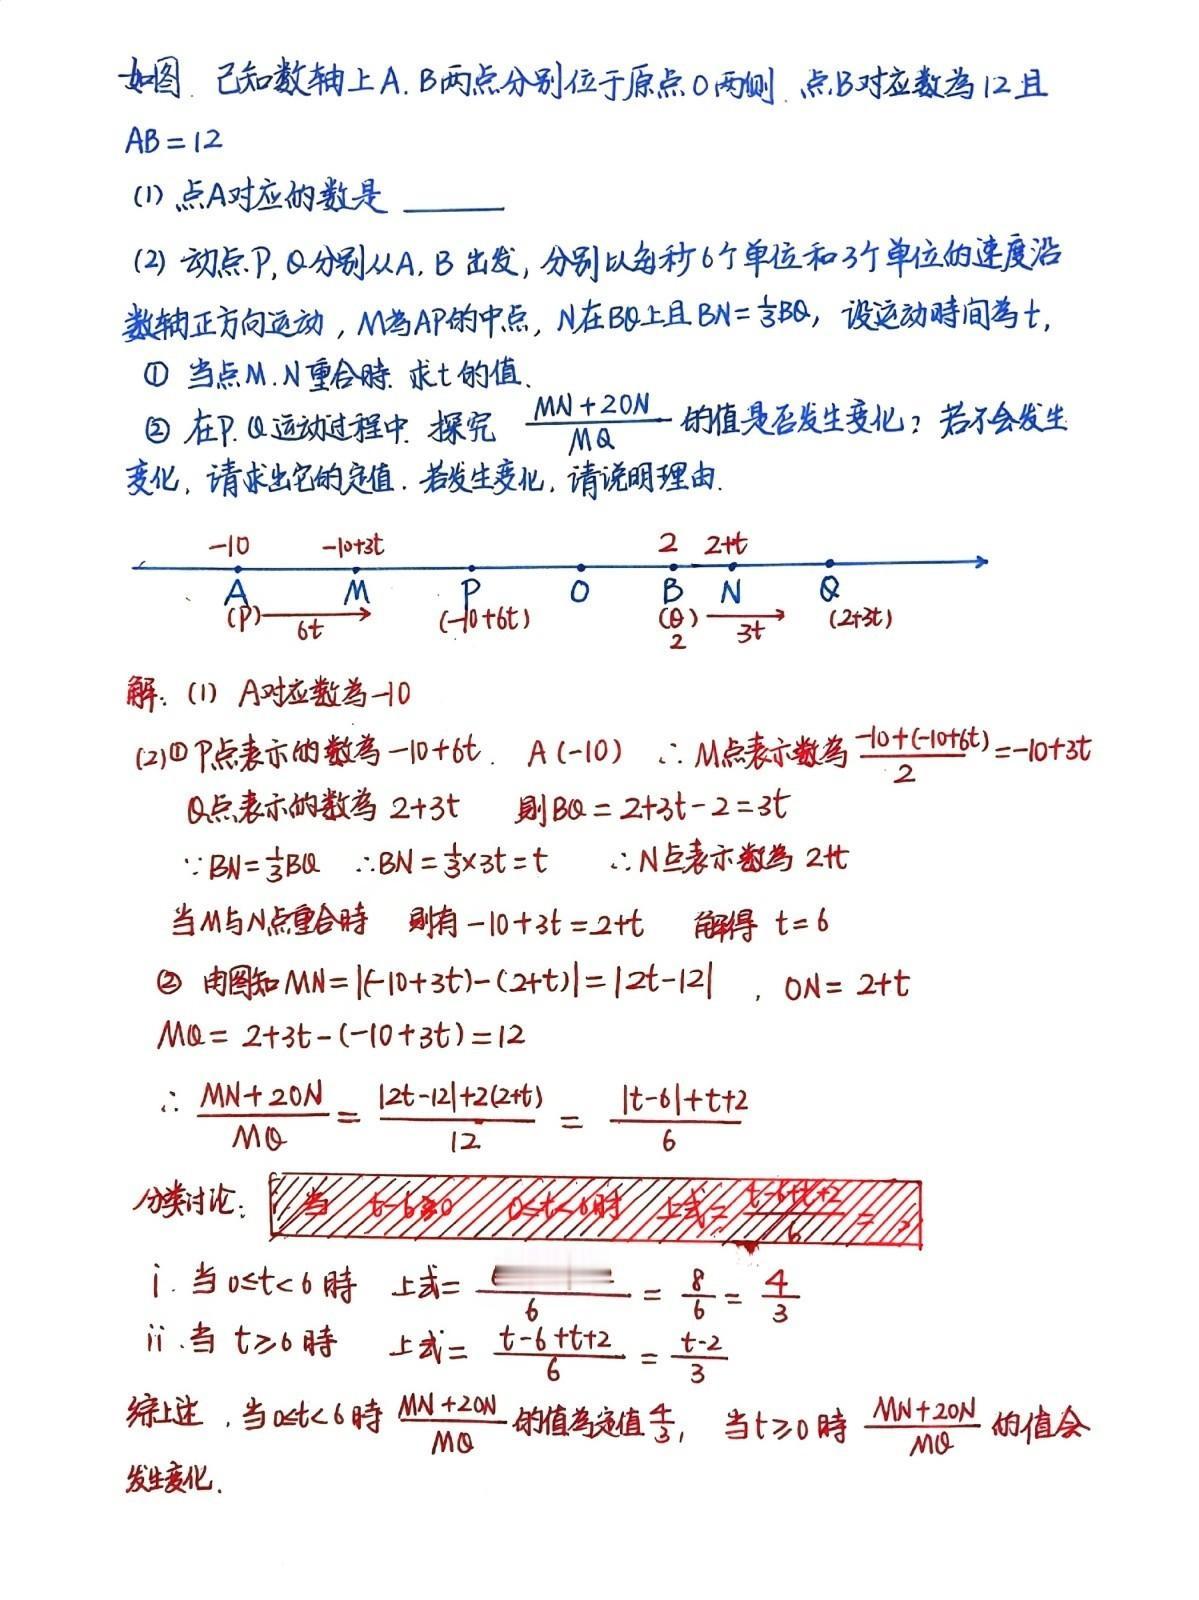 如图. 已知数轴上A.B两点分别位于原点O两侧. 点B对应数為12且
AB=12
(1) 点A对应的数是 ______
(2) 动点P,Q分别从A,B出发,分别以每秒6个单位和3个单位的速度沿
数轴正方向运动,M為AP的中点,N在BQ上且BN=1/3BQ,设运动時间為t,
① 当点M.N重合時.求t的值.
② 在P.Q运动过程中.探究 (MN+2ON)/MQ 的值是否发生变化?若不会发生
变化,请求出它的定值.若发生变化,请说明理由.
-10 -10+3t 2 2+t
A M P O B N Q
(P) 6t (-10+6t) (Q) 2 3t (2+3t)
解:(1) A对应数為-10
(2)① P点表示的数為-10+6t. A(-10) ∴M点表示数為 (-10+(-10+6t))/2=-10+3t
Q点表示的数為2+3t 则BQ=2+3t-2=3t
∵BN=1/3BQ ∴BN=1/3×3t=t ∴N点表示数為2+t
当M与N点重合時 则有-10+3t=2+t 解得 t=6
② 由图知MN=|(-10+3t)-(2+t)|=|2t-12| , ON=2+t
MQ=2+3t-(-10+3t)=12
∴ (MN+2ON)/MQ = (|2t-12|+2(2+t))/12 = (|t-6|+t+2)/6
分类讨论:
i.当0≤t<6時 上式= /6 = 8/6 = 4/3
ii.当 t≥6時 上式= (t-6+t+2)/6 = (t-2)/3
综上述,当0≤t<6時 (MN+2ON)/MQ 的值為定值4/3, 当t≥0時 (MN+2ON)/MQ 的值会
发生变化.